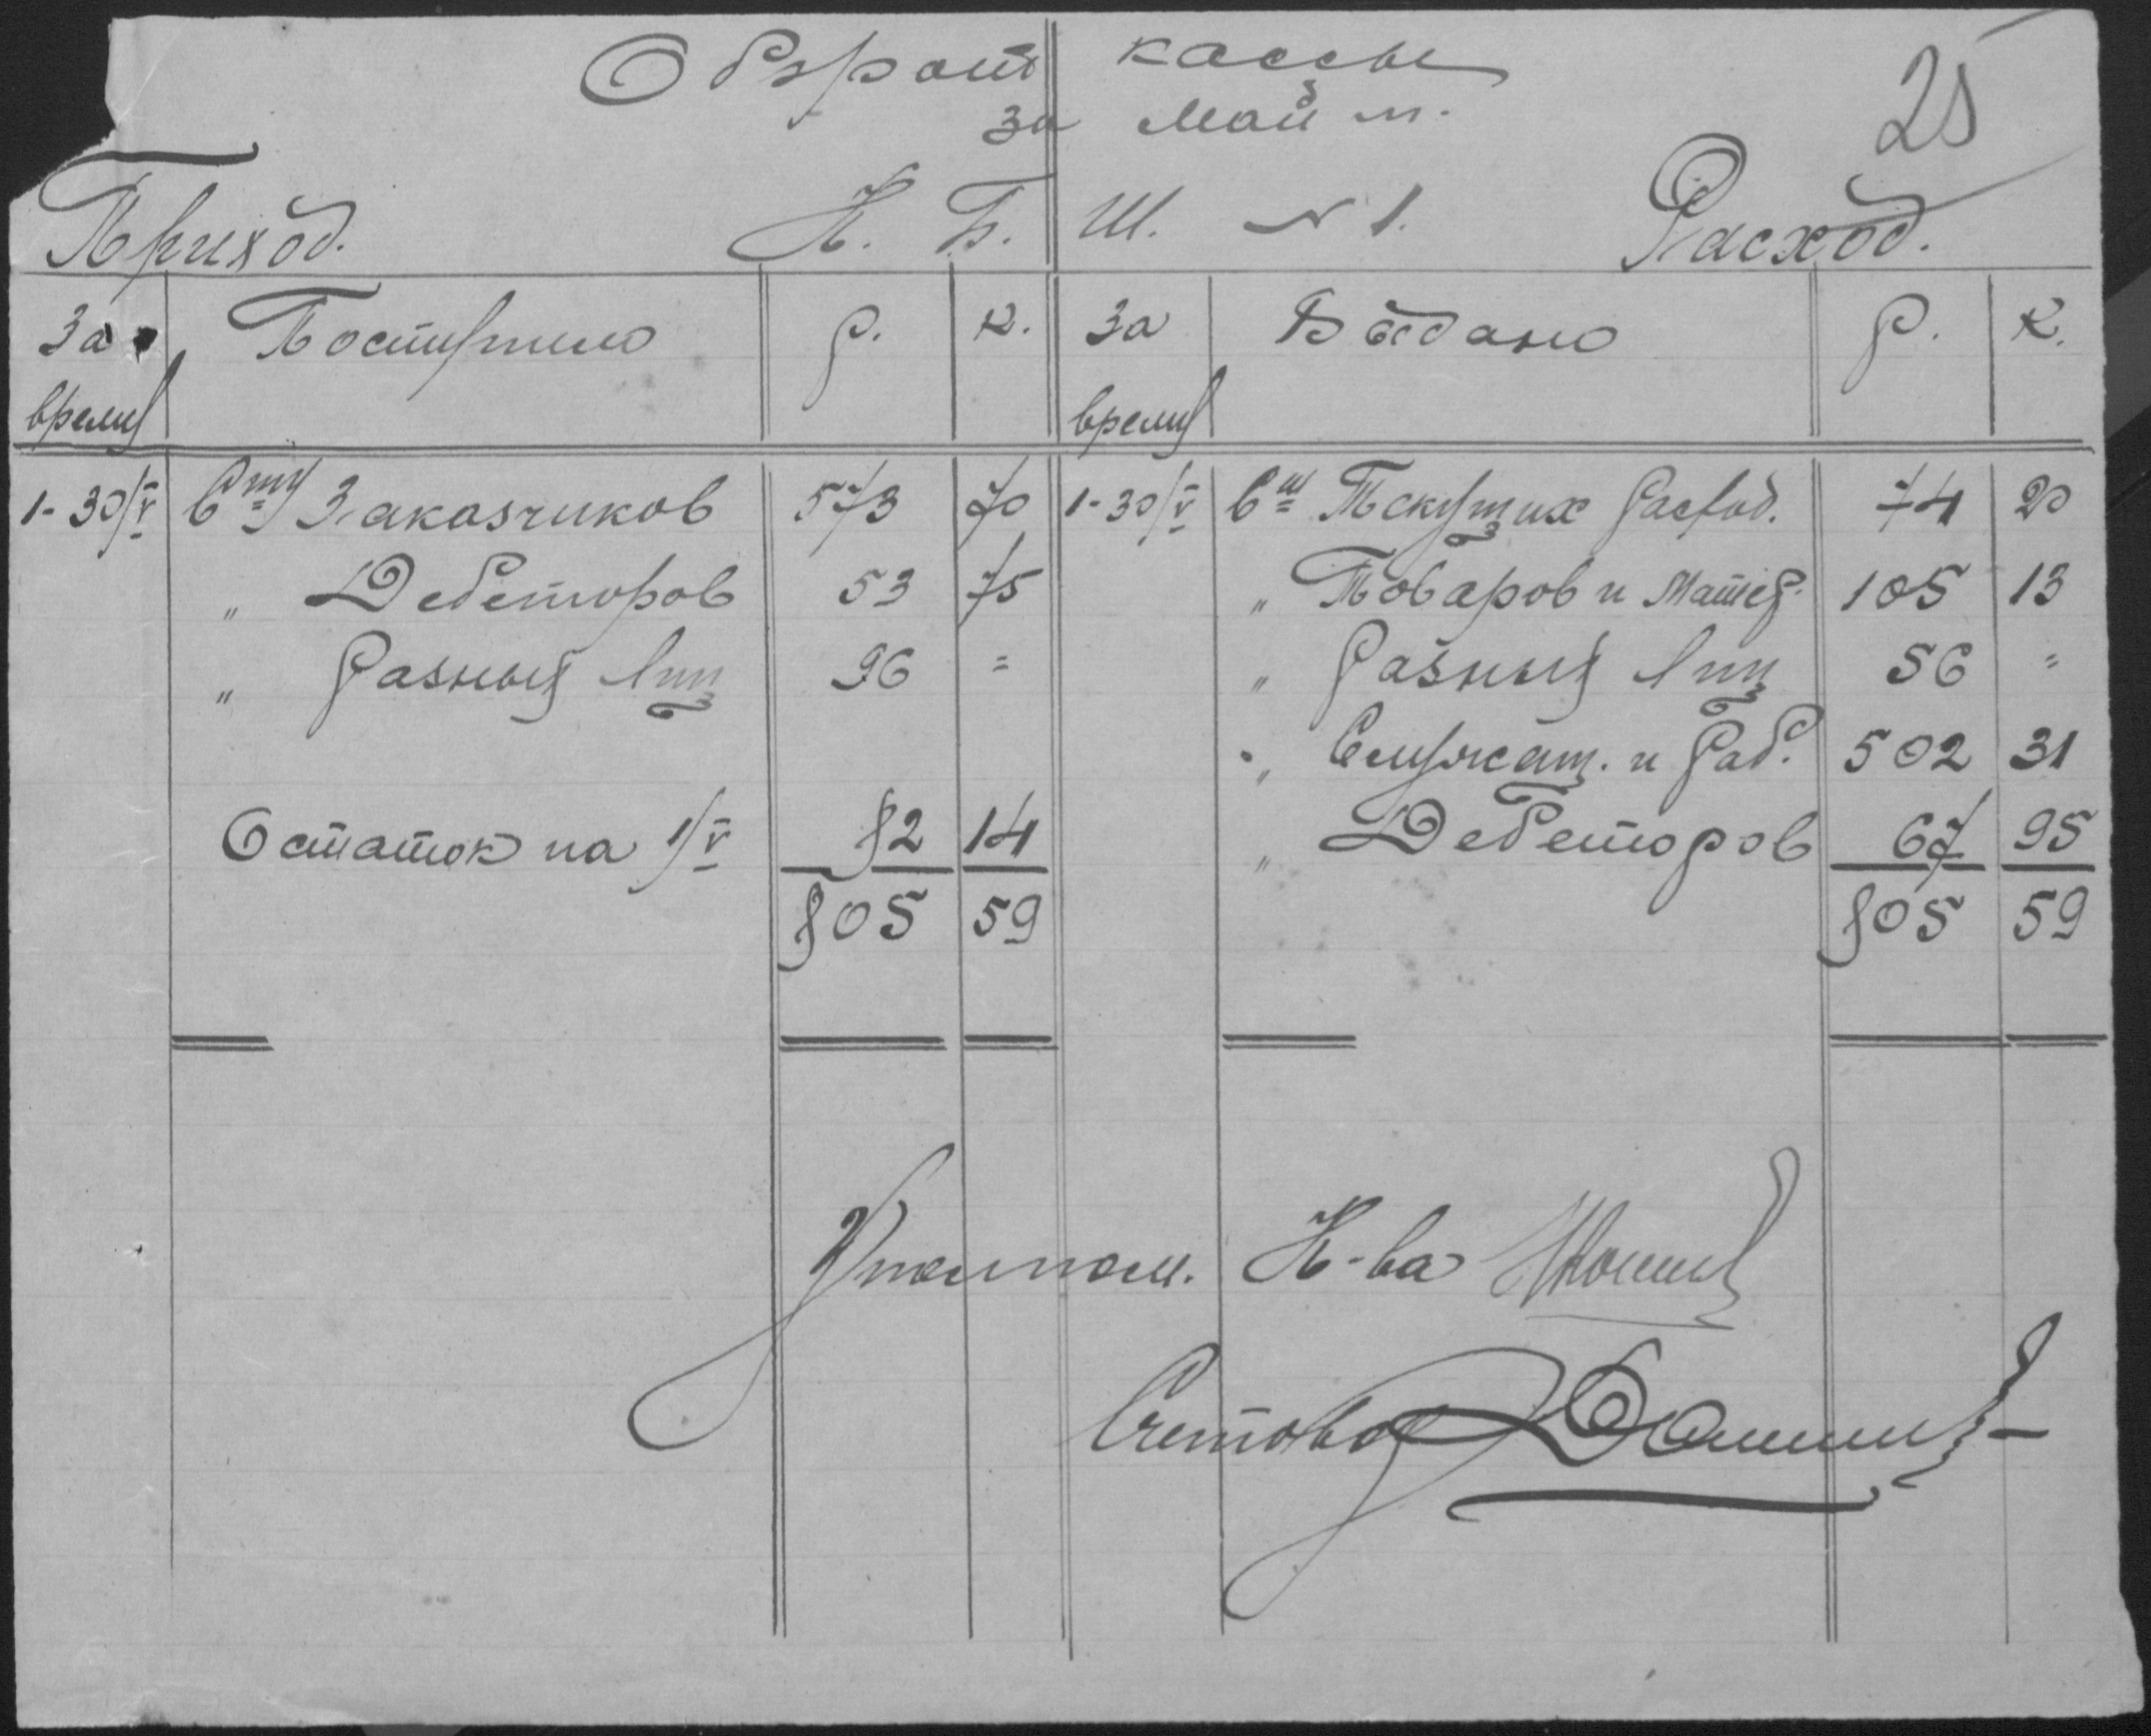 Оборот кассы
25
за Май м.
Приход. К. Б. Ш. № 1. Расход.
За время Поступило Р. К. За время Выдано Р. К.
1-30/V Сту Заказчиков 573 70 1-30/V Сш Текущих Расход. 74 20
" Дебеторов 53 75 " Товаров и Матер. 105 13
" Разных лиц 96 = " Разных лиц 56 =
" Служащ. и Раб. 502 31
Остаток на 1/V 82 14 " Дебеторов 67 95
805 59 805 59
Уполном. К-ва
Счетовод